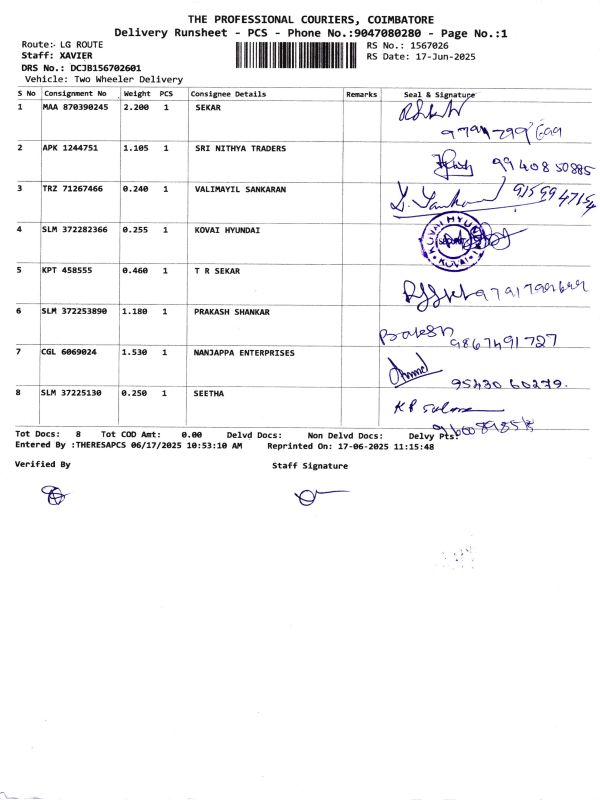 THE PROFESSIONAL COURIERS, COIMBATORE
Delivery Runsheet - PCS - Phone No.:9047080280 - Page No.:1
Route:- LG ROUTE RS No.: 1567026
Staff: XAVIER RS Date: 17-Jun-2025
DRS No.: DCJB156702601
Vehicle: Two Wheeler Delivery
S No Consignment No Weight PCS Consignee Details Remarks Seal & Signature
1 MAA 870390245 2.200 1 SEKAR
2 APK 1244751 1.105 1 SRI NITHYA TRADERS
99408 50885
3 TRZ 71267466 0.240 1 VALIMAYIL SANKARAN
4 SLM 372282366 0.255 1 KOVAI HYUNDAI
KOVAI HYUNDAI
KOVAI
5 KPT 458555 0.460 1 T R SEKAR
6 SLM 372253890 1.180 1 PRAKASH SHANKAR
9867491727
7 CGL 6069024 1.530 1 NANJAPPA ENTERPRISES
95430 60279.
8 SLM 37225130 0.250 1 SEETHA
Tot Docs: 8 Tot COD Amt: 0.00 Delvd Docs: Non Delvd Docs: Delvy Pts:
Entered By :THERESAPCS 06/17/2025 10:53:10 AM Reprinted On: 17-06-2025 11:15:48
Verified By Staff Signature